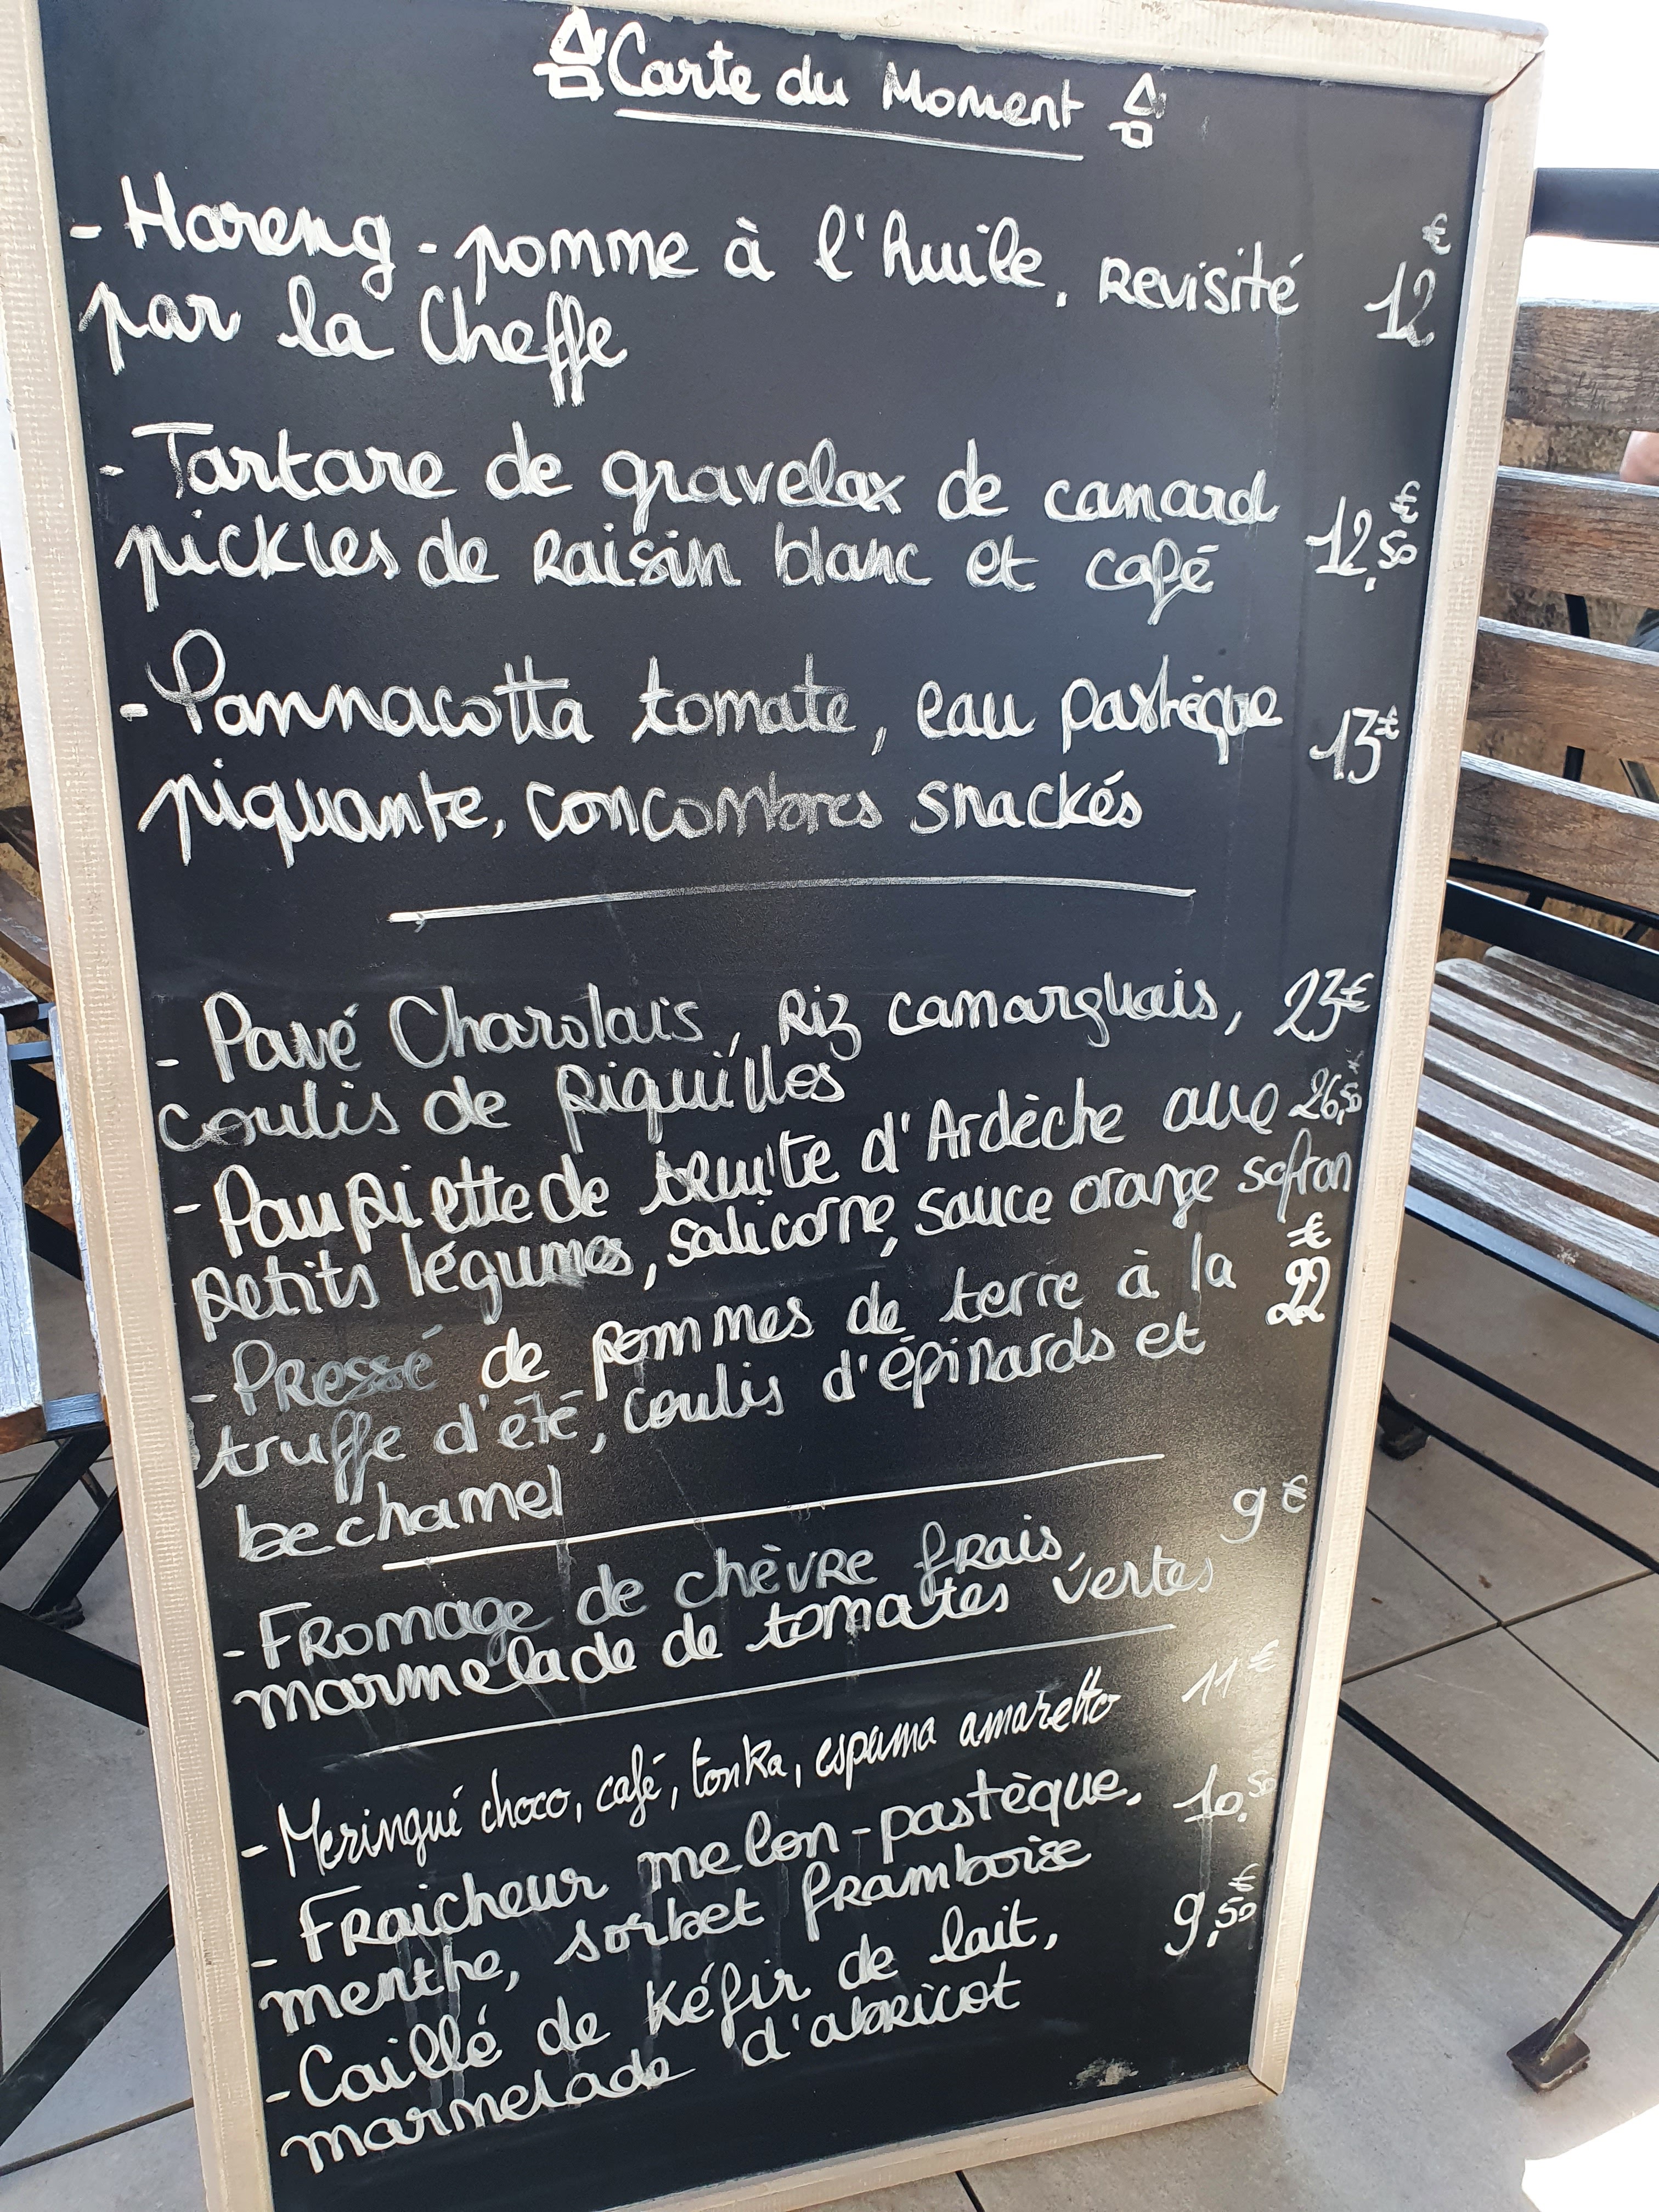 Carte du Moment
€
- Hareng - pomme à l'huile, revisité 12
par la Cheffe
- Tartare de gravelax de canard
pickles de raisin blanc et café 12,50€
- Pannacotta tomate, eau pastèque
piquante, concombres snackés 13€
- Pavé Charolais, Riz camarguais, 23€
coulis de piquillos
- Paupiette de truite d'Ardèche aux 26,50
petits légumes, salicorne, sauce orange safran
- Pressé de pommes de terre à la 22€
truffe d'été, coulis d'épinards et
bechamel
- Fromage de chèvre frais, 9€
marmelade de tomates vertes
- Meringué choco, café, tonka, espuma amaretto 11€
- Fraicheur melon-pastèque, 10,50
menthe, sorbet framboise
- Caillé de Kéfir de lait, 9,50€
marmelade d'abricot